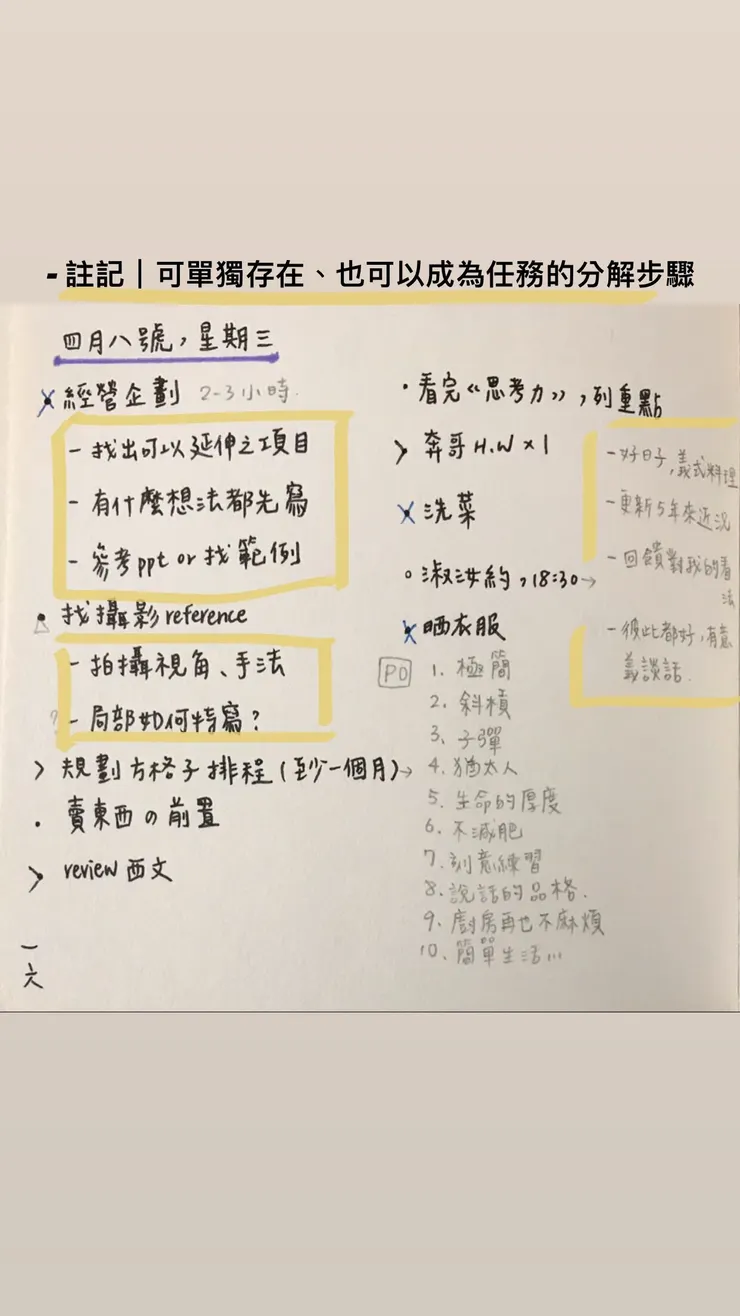 - 註記｜可單獨存在、也可以成為任務的分解步驟
四月八號，星期三
× 經營企劃 2-3小時.
- 找出可以延伸之項目
- 有什麼想法都先寫
- 參考ppt or 找範例
• 找攝影reference
- 拍攝視角、手法
? - 局部如何特寫？
> 規劃方格子排程(至少一個月)→
• 賣東西の前置
> review西文
一六
• 看完《思考力》，列重點
> 奔哥 H.W × 1
× 洗菜
○ 淑汝約，18:30→
× 晒衣服
- 好日子，義式料理
- 更新5年來近況
- 回饋對我的看法
- 彼此都好，有意
義談話.
PO
1. 極簡
2. 斜槓
3. 子彈
4. 猶太人
5. 生命的厚度
6. 不減肥
7. 刻意練習
8. 說話的品格.
9. 廚房再也不麻煩
10. 簡單生活...